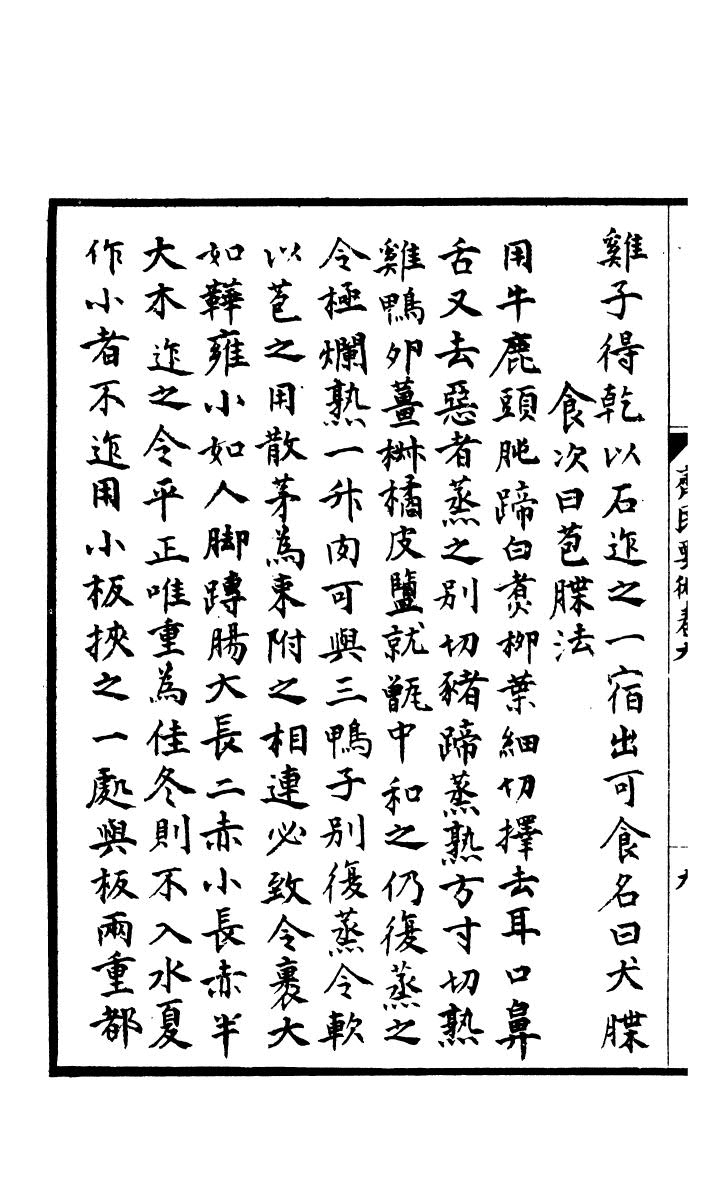 雞子得乾以石迮之一宿出可食名曰犬䐑
食次曰苞䐑法
用牛鹿頭肫蹄白煑栁葉細切擇去耳口鼻
舌又去惡者蒸之别切豬蹄蒸熟方寸切熟
雞鴨卵薑椒橘皮鹽就甑中和之仍復蒸之
令極爛熟一升肉可與三鴨子别復蒸令軟
以苞之用散茅為束附之相連必致令裹大
如鞾雍小如人脚蹲腸大長二赤小長赤半
大木迮之令平正唯重為佳冬則不入水夏
作小者不迮用小板挾之一處與板兩重都
齊民要術卷九
九